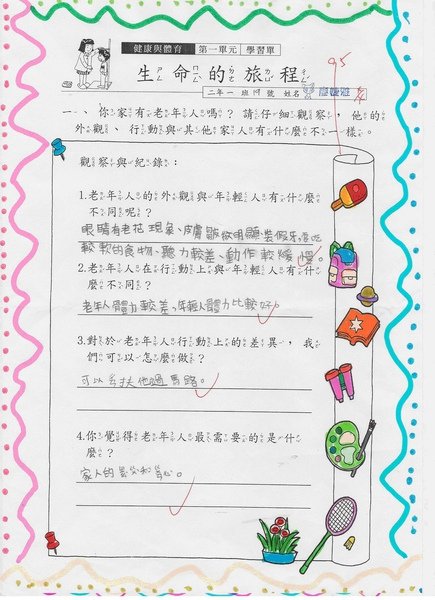 健康與體育 第一單元 學習單
95
生命的旅程
二年一班 19號 姓名
一、你家有老年人嗎？請仔細觀察，他的
外觀、行動與其他家人有什麼不一樣。
觀察與紀錄：
1.老年人的外觀與年輕人有什麼
不同呢？
眼睛有老花現象、皮膚皺紋明顯、裝假牙、愛吃
較軟的食物、聽力較差、動作較緩慢。
2.老年人在行動上與年輕人有什
麼不同？
老年人體力較差、年輕人體力比較好。
3.對於老年人行動上的差異，我
們可以怎麼做？
可以去扶他過馬路。
4.你覺得老年人最需要的是什
麼？
家人的 和 心。